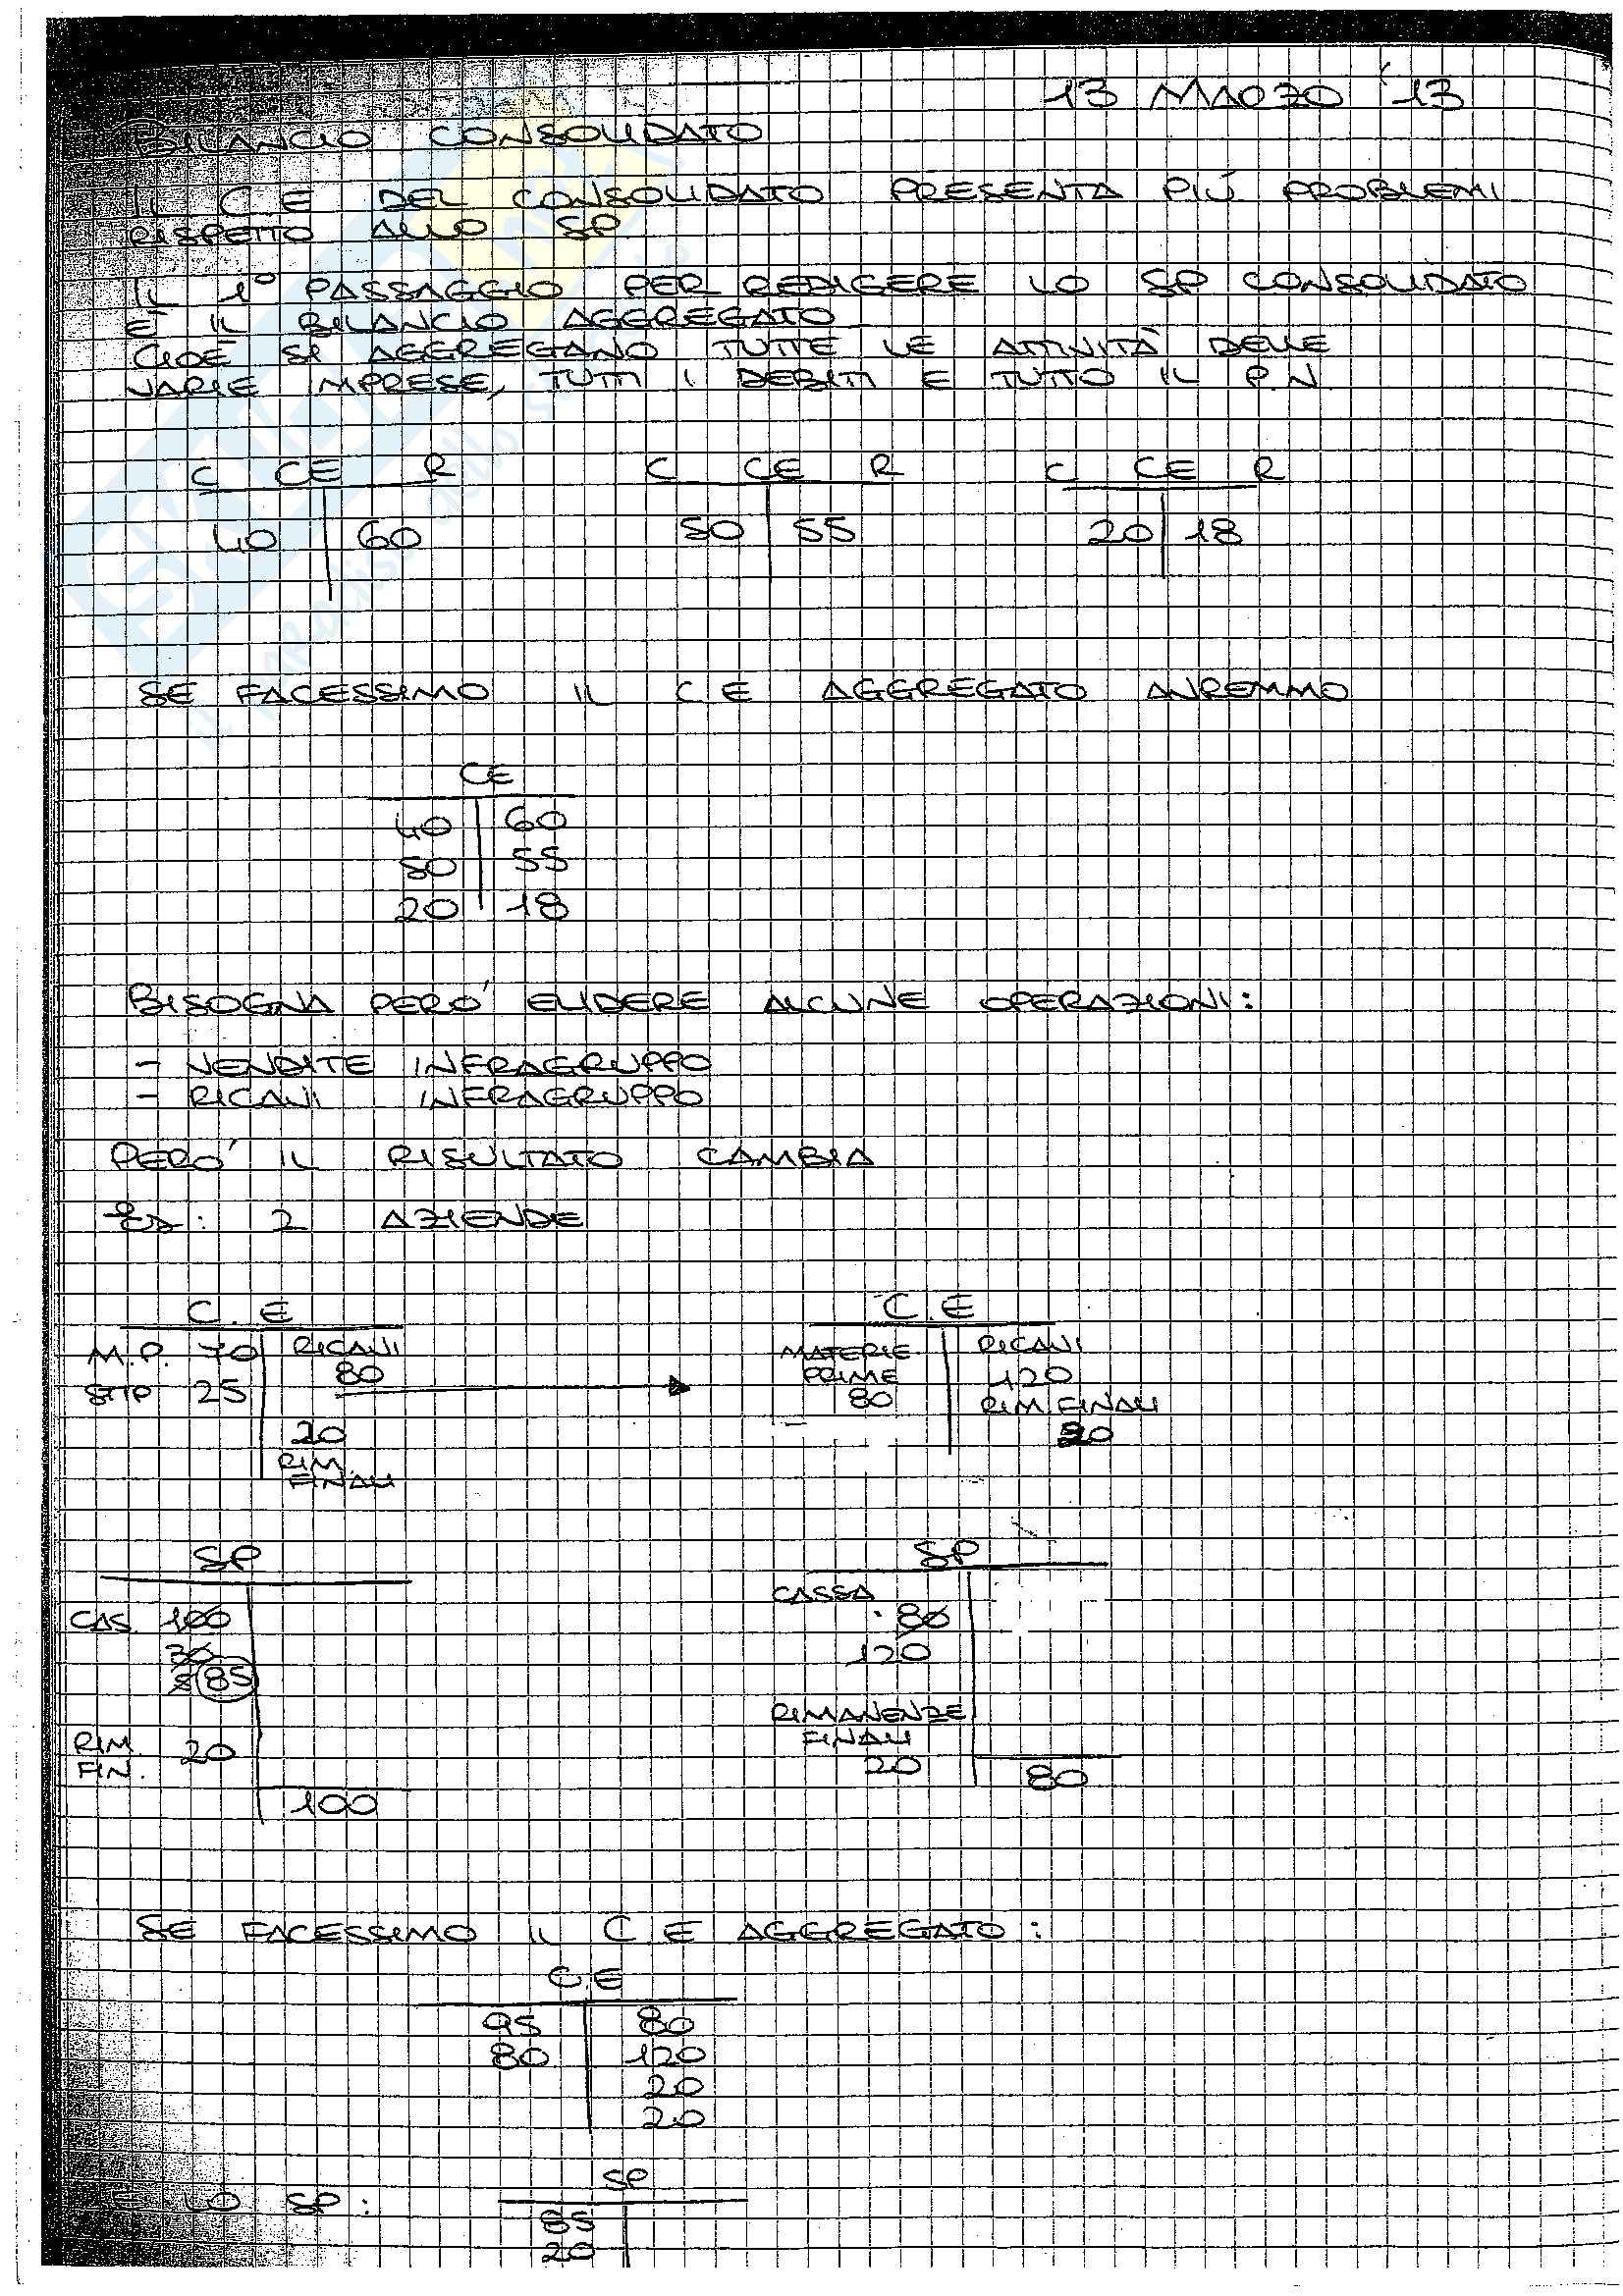 13 MARZO '13
BILANCIO CONSOLIDATO
IL C E DEL CONSOLIDATO PRESENTA PIÙ PROBLEMI
RISPETTO ALLO SP
IL 1° PASSAGGIO PER REDIGERE LO SP CONSOLIDATO
È IL BILANCIO AGGREGATO
CIOÈ SI AGGREGANO TUTTE LE ATTIVITÀ DELLE
VARIE IMPRESE, TUTTI I DEBITI E TUTTO IL P.N.
C CE R C CE R C CE R
40 60 50 55 20 18
SE FACESSIMO IL C E AGGREGATO AVREMMO
CE
40 60
50 55
20 18
BISOGNA PERÒ ELIDERE ALCUNE OPERAZIONI:
- VENDITE INFRAGRUPPO
- RICAVI INFRAGRUPPO
PERÒ IL RISULTATO CAMBIA
Es: 2 AZIENDE
C.E C.E
M.P. 70 RICAVI MATERIE RICAVI
80 PRIME 120
STIP 25 80 RIM FINALI
20 20
RIM.
FINALI
SP SP
CASSA
CAS. 100 80
70 120
85
RIMANENZE
RIM. 20 FINALI
FIN. 20 80
100
SE FACESSIMO IL C E AGGREGATO:
C.E
95 80
80 120
20
20
SP
E LO SP:
85
20